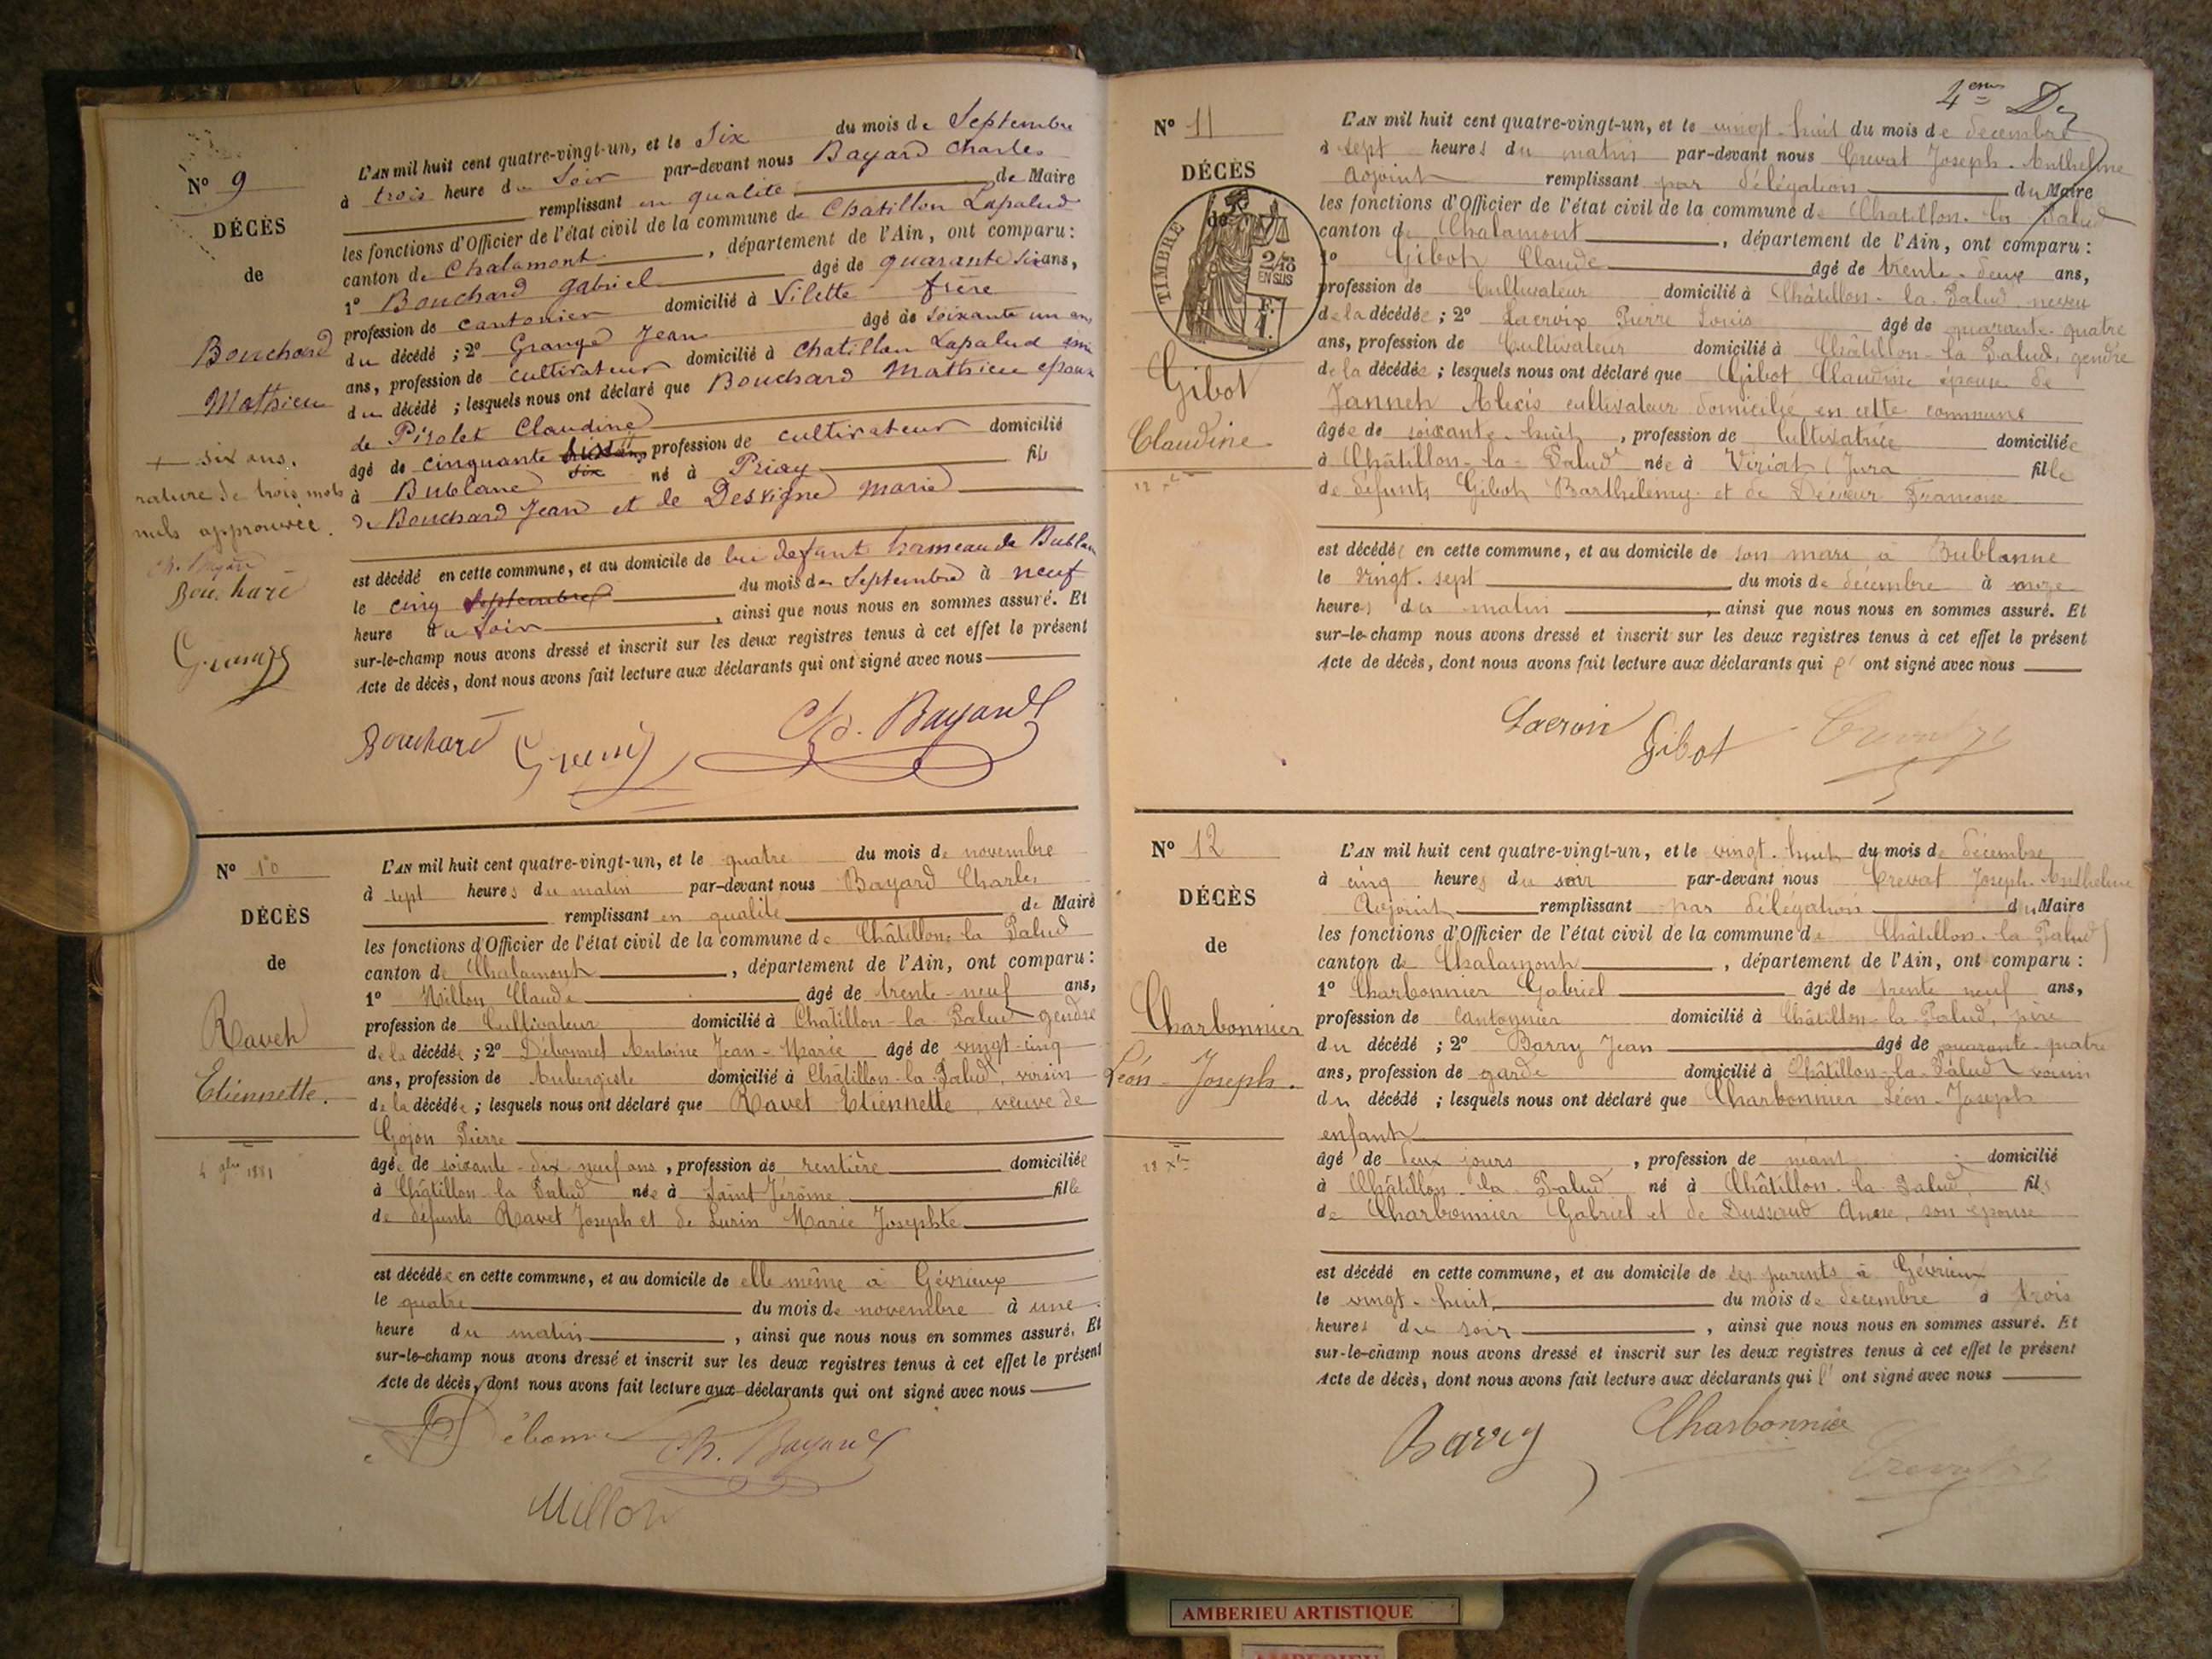 Nº 9
DÉCÈS
de
Bouchard
Mathieu
+ six ans.
rature de trois mots
nuls approuvée.
Ch. Bayard
Bouchard
L'AN mil huit cent quatre-vingt-un, et le Six du mois de Septembre
à trois heure du Soir par-devant nous Bayard Charles
remplissant en qualité de Maire
les fonctions d'Officier de l'état civil de la commune de Chatillon Lapalud
canton de Chalamont, département de l'Ain, ont comparu:
1º Bouchard gabriel âgé de quarante six ans,
profession de cantonier domicilié à Vilette frère
du décédé; 2º Grange Jean âgé de soixante un ans
ans, profession de cultivateur domicilié à Chatillon Lapalud ami
du décédé; lesquels nous ont déclaré que Bouchard Mathieu epoux
de Pirolet Claudine
âgé de cinquante six profession de cultivateur domicilié
à Bublane né à Priay fils
de Bouchard Jean et de Desvigne Marie
est décédé en cette commune, et au domicile de lui defunt hameau de Bublane
le cinq Septembre du mois de Septembre à neuf
heure du Soir, ainsi que nous nous en sommes assuré. Et
sur-le-champ nous avons dressé et inscrit sur les deux registres tenus à cet effet le présent
Acte de décès, dont nous avons fait lecture aux déclarants qui ont signé avec nous
Bouchard Ch. Bayard
Nº 10
DÉCÈS
de
Ravet
Etiennette.
4 9bre 1881
L'AN mil huit cent quatre-vingt-un, et le quatre du mois de novembre
à sept heures du matin par-devant nous Bayard Charles
remplissant en qualité de Maire
les fonctions d'Officier de l'état civil de la commune de Châtillon-la-Palud
canton de Chalamont, département de l'Ain, ont comparu:
1º Millon Claude âgé de trente-neuf ans,
profession de Cultivateur domicilié à Chatillon-la-Palud gendre
de la décédée; 2º Débonnet Antoine Jean-Marie âgé de vingt-cinq
ans, profession de Aubergiste domicilié à Châtillon-la-Palud, voisin
de la décédée; lesquels nous ont déclaré que Ravet Etiennette, veuve de
Gojon Pierre
âgée de soixante-dix-neuf ans, profession de rentière domiciliée
à Châtillon-la-Palud née à Saint Jérôme fille
de défunts Ravet Joseph et de Lurin Marie Josephte
est décédée en cette commune, et au domicile de elle même à Gévrieux
le quatre du mois de novembre à une
heure du matin, ainsi que nous nous en sommes assuré. Et
sur-le-champ nous avons dressé et inscrit sur les deux registres tenus à cet effet le présent
Acte de décès, dont nous avons fait lecture aux déclarants qui ont signé avec nous
Débonnet Ch. Bayard
Millon
4eme
Nº 11
DÉCÈS
de
TIMBRE
2/10
EN SUS
F.
1.
Gibot
Claudine
L'AN mil huit cent quatre-vingt-un, et le vingt-huit du mois de décembre
à sept heures du matin par-devant nous Crevat Joseph-Anthelme
adjoint remplissant par délégation du Maire
les fonctions d'Officier de l'état civil de la commune de Chatillon-la-Palud
canton de Chalamont, département de l'Ain, ont comparu:
1º Gibot Claude âgé de trente-deux ans,
profession de Cultivateur domicilié à Châtillon-la-Palud neveu
de la décédée; 2º Lacroix Pierre Louis âgé de quarante-quatre
ans, profession de Cultivateur domicilié à Châtillon-la-Palud, gendre
de la décédée; lesquels nous ont déclaré que Gibot Claudine épouse de
Jannet Alexis cultivateur domicilié en cette commune
âgée de soixante-huit, profession de Cultivatrice domiciliée
à Châtillon-la-Palud née à Viriat (Jura fille
de défunts Gibot Barthélemy et de Françoise
est décédée en cette commune, et au domicile de son mari à Bublanne
le vingt-sept du mois de décembre à onze
heures du matin, ainsi que nous nous en sommes assuré. Et
sur-le-champ nous avons dressé et inscrit sur les deux registres tenus à cet effet le présent
Acte de décès, dont nous avons fait lecture aux déclarants qui l' ont signé avec nous
Lacroix Gibot Crevat
Nº 12
DÉCÈS
de
Charbonnier
Léon-Joseph.
L'AN mil huit cent quatre-vingt-un, et le vingt-huit du mois de décembre
à cinq heures du soir par-devant nous Crevat Joseph-Anthelme
Adjoint remplissant par délégation du Maire
les fonctions d'Officier de l'état civil de la commune de Châtillon-la-Palud
canton de Chalamont, département de l'Ain, ont comparu:
1º Charbonnier Gabriel âgé de trente neuf ans,
profession de Cantonnier domicilié à Châtillon-la-Palud, père
du décédé; 2º Barry Jean âgé de quarante-quatre
ans, profession de garde domicilié à Châtillon-la-Palud voisin
du décédé; lesquels nous ont déclaré que Charbonnier Léon-Joseph
enfant
âgé de deux jours, profession de néant domicilié
à Châtillon-la-Palud né à Châtillon-la-Palud fils
de Charbonnier Gabriel et de Dussaud Anne, son épouse
est décédé en cette commune, et au domicile de ses parents à Gévrieux
le vingt-huit du mois de décembre à trois
heures du soir, ainsi que nous nous en sommes assuré. Et
sur-le-champ nous avons dressé et inscrit sur les deux registres tenus à cet effet le présent
Acte de décès, dont nous avons fait lecture aux déclarants qui l' ont signé avec nous
Barry Charbonnier
Crevat
AMBERIEU ARTISTIQUE
AMBERIEU